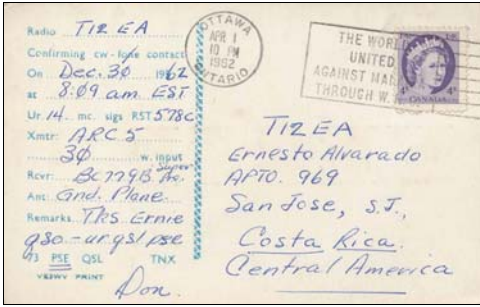 Radio TI2EA
Confirming cw-fone contact
On Dec. 30 1962
at 8:09 am EST
Ur 14 mc. sigs RST 578c
Xmtr: ARC5
30 w. input
Rcvr: BC779B Super Pro.
Ant: Gnd. Plane
Remarks Tks Ernie
qso - ur qsl pse
73 PSE QSL TNX
PRINT
Don.
OTTAWA
APR 1
10 PM
1962
ONTARIO
THE WORLD
UNITED
AGAINST MAL
THROUGH W.
4 4
CANADA
TI2EA
Ernesto Alvarado
APTO. 969
San Jose, S.J.,
Costa Rica.
Central America